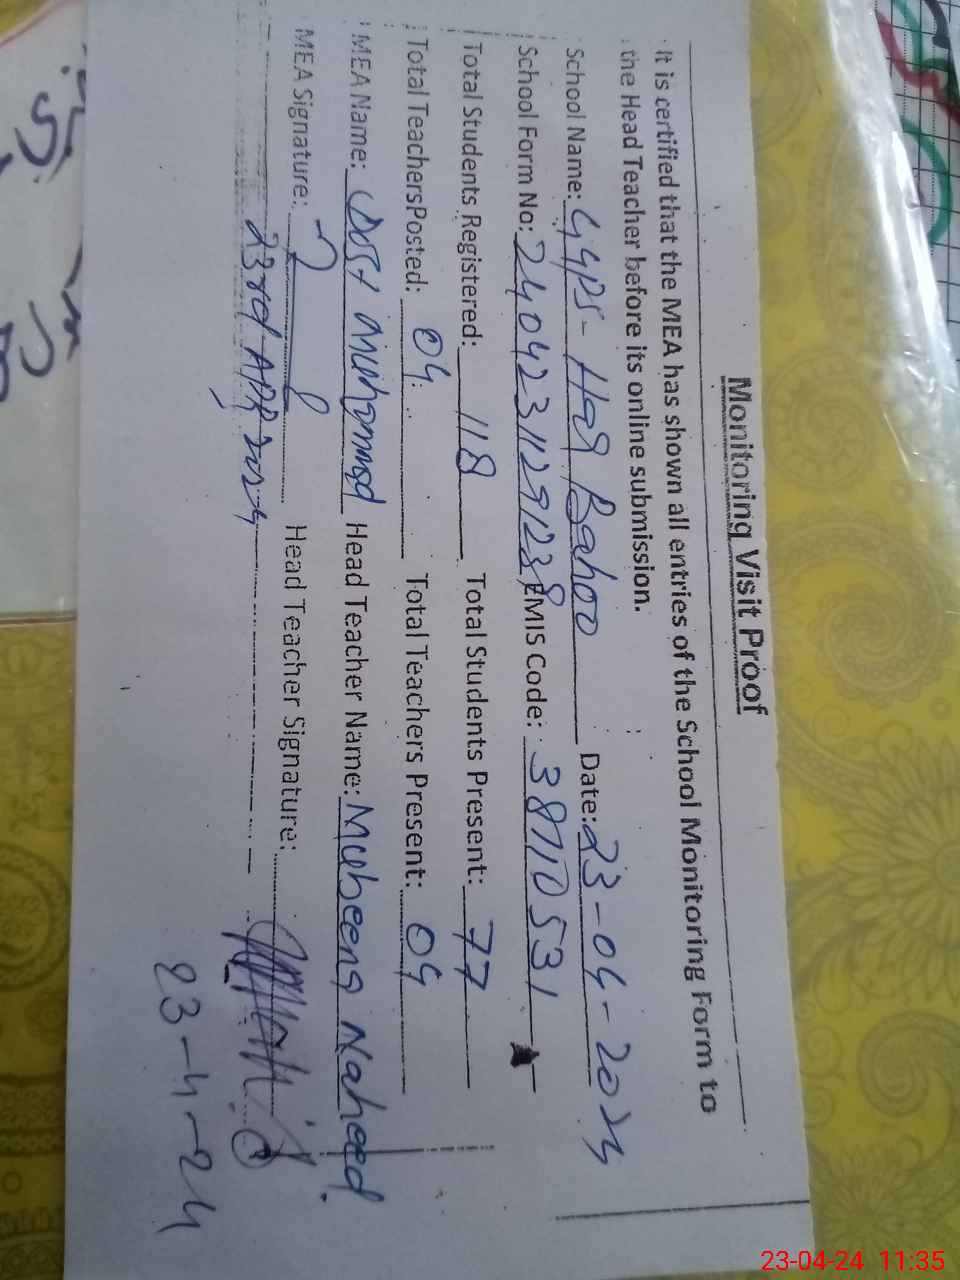 Monitoring Visit Proof
It is certified that the MEA has shown all entries of the School Monitoring Form to
the Head Teacher before its online submission.
School Name: GGPS - Haq Bahoo Date: 23-04-2024
School Form No: 24042311291238 EMIS Code: 38710531
Total Students Registered: 118 Total Students Present: 77
Total TeachersPosted: 04 Total Teachers Present: 04
MEA Name: Dost Muhammad Head Teacher Name: Mubeena Naheed
MEA Signature: Head Teacher Signature:
23rd APR 2024
23-4-24
23-04-24 11:35